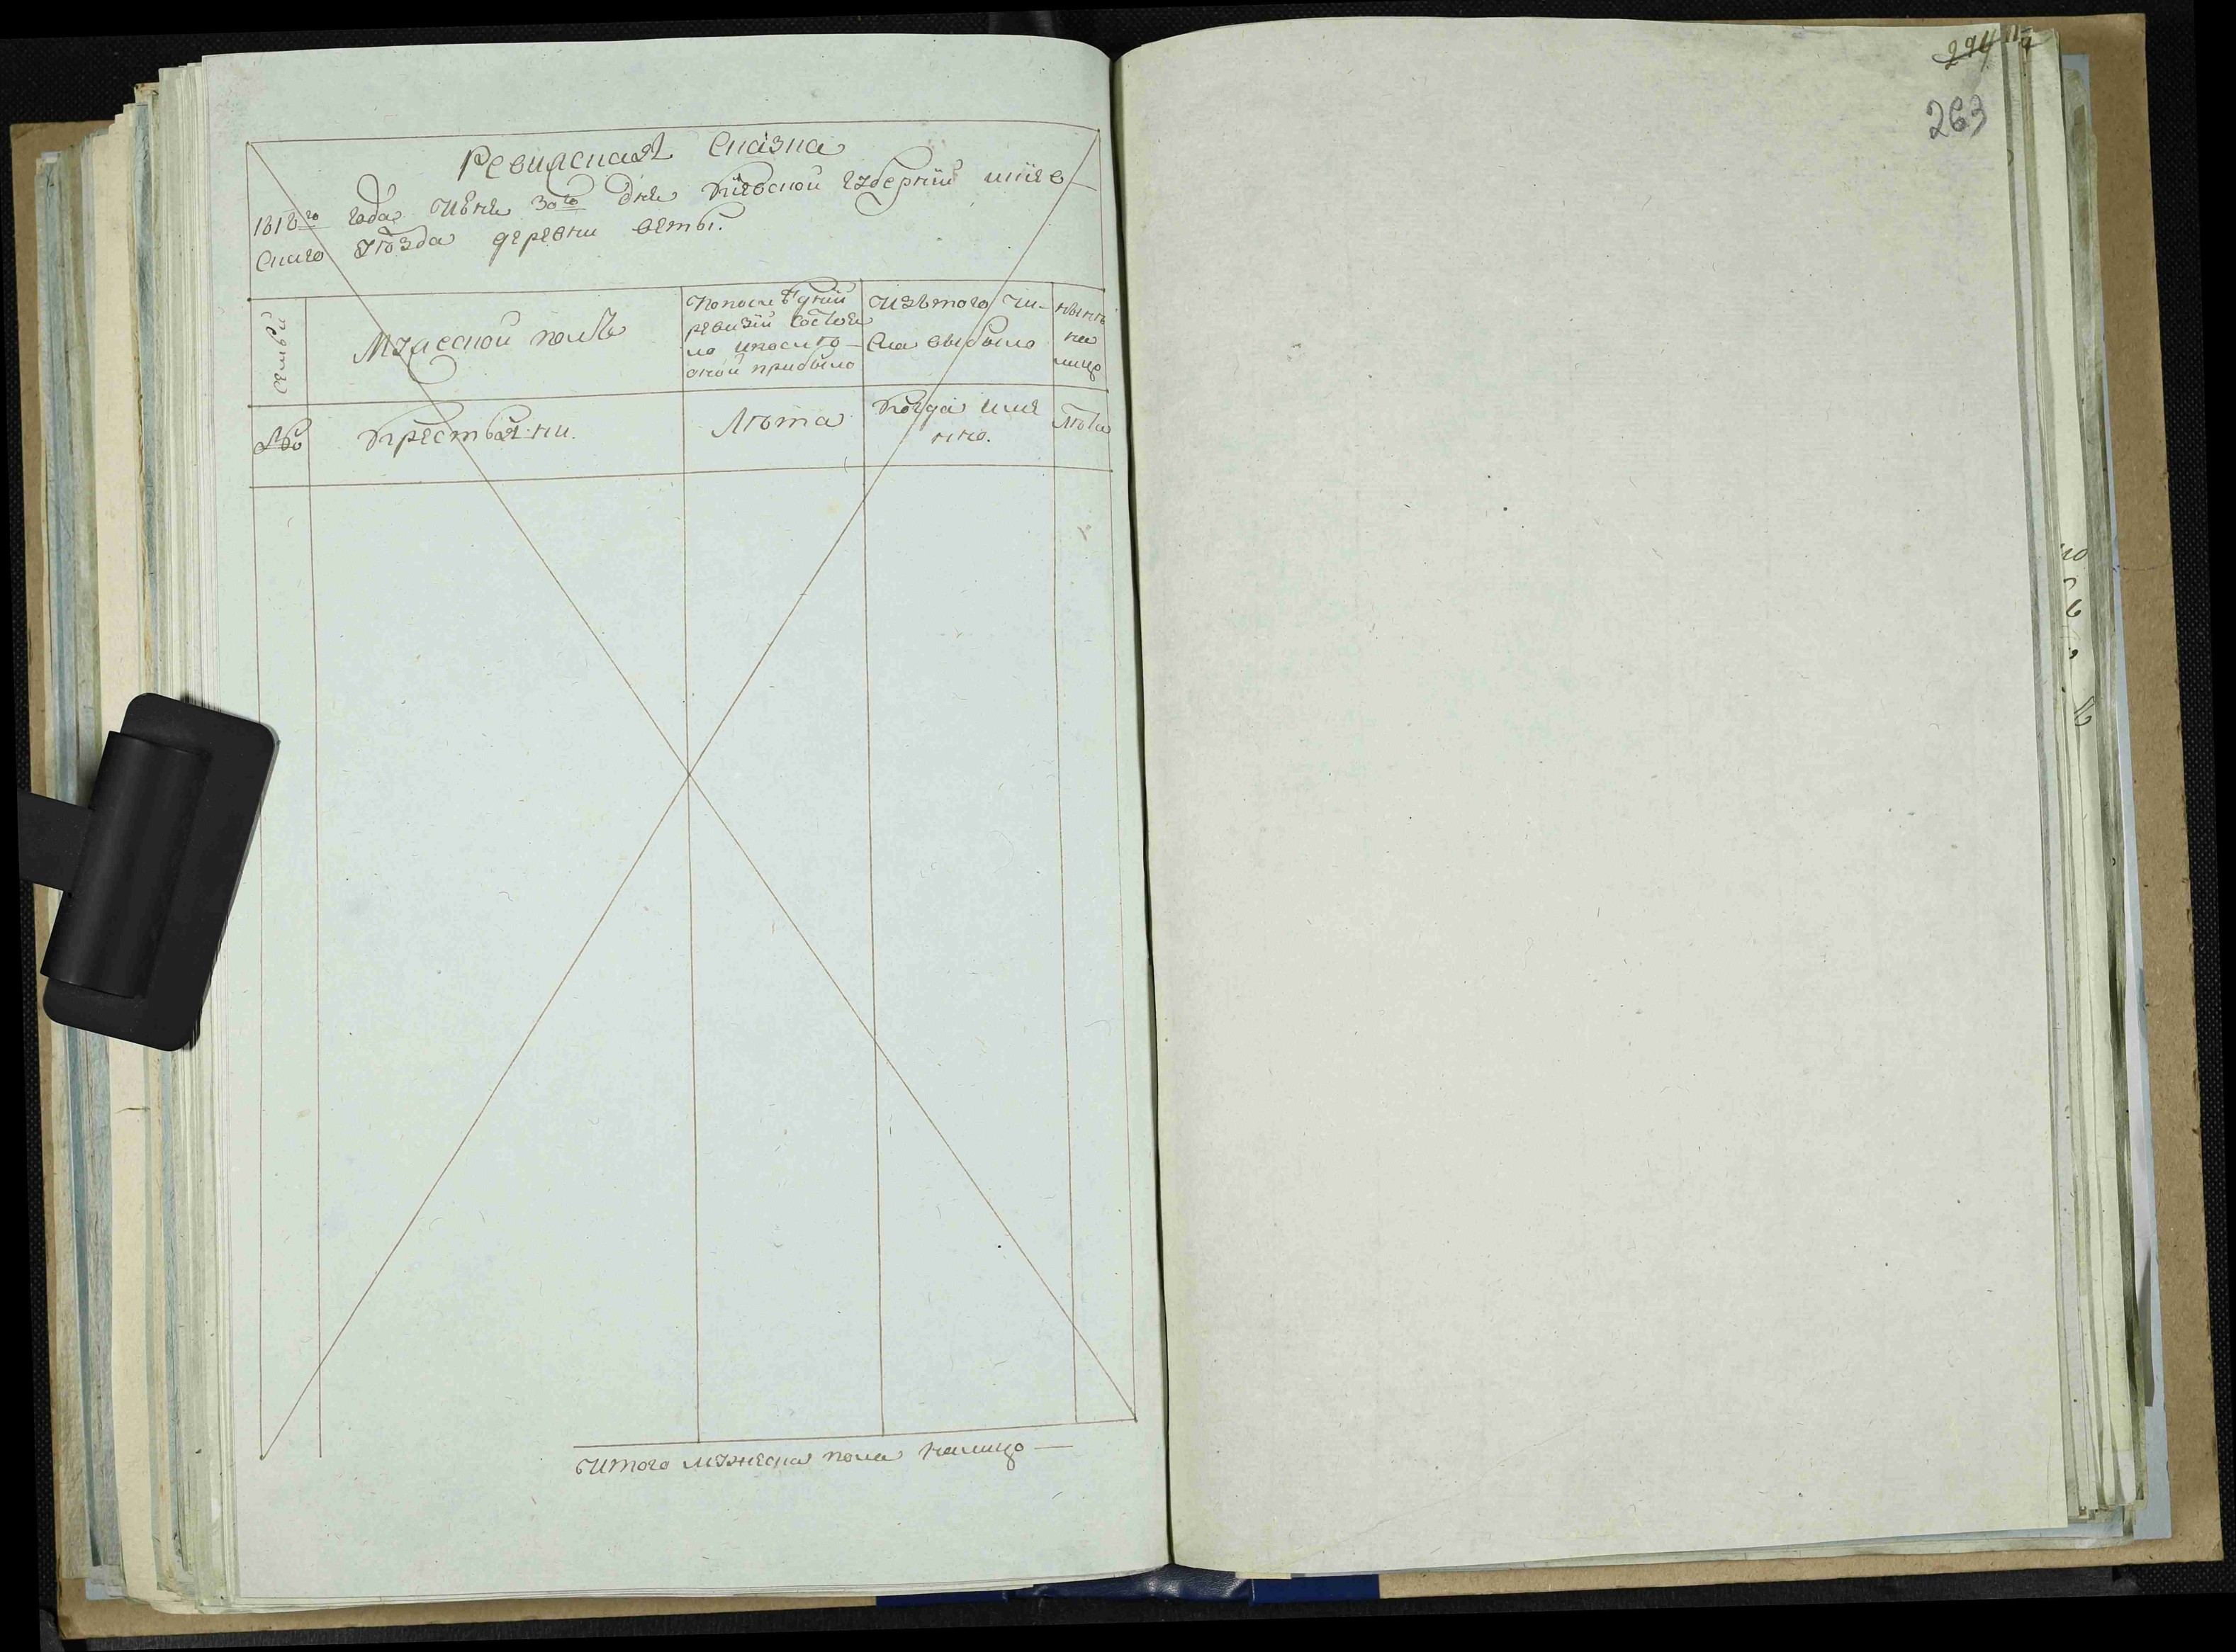 Ревижская Сказка
1818го года Июня 30го дня Киевской губернии Киев-
скаго уѣзда деревни Веты.
Семьи
Мужеской полъ
По последнѣй
ревизіи состоя
ло и после то
оной прибыло
Изъ того чи-
сла выбыло
нынѣ
на
лицо
№
Крестьяни.
Лѣта
Когда име
нно.
Лѣта
Итого мужеска пола налицо —
294
263